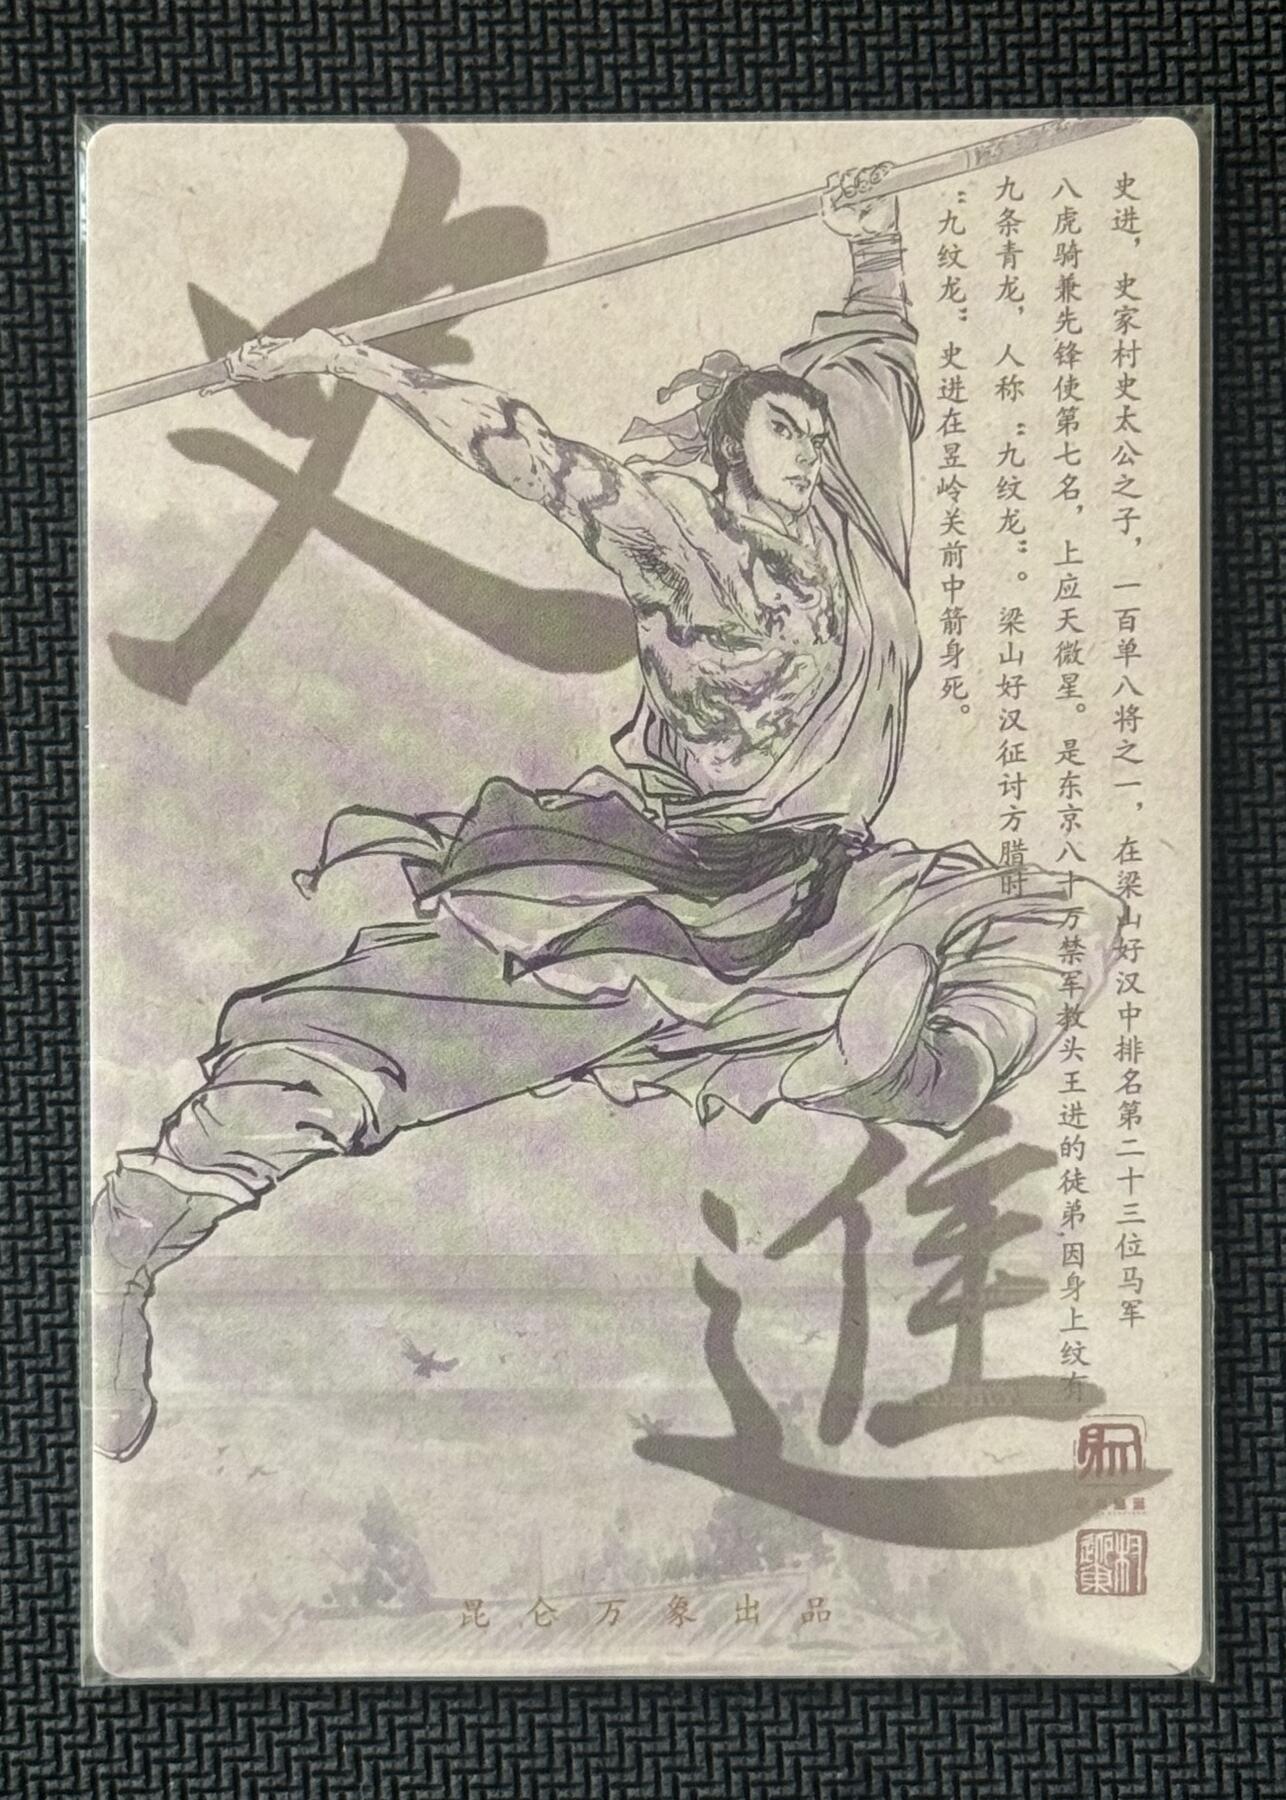 史进，史家村史太公之子，一百单八将之一，在梁山好汉中排名第二十三位马军
八虎骑兼先锋使第七名，上应天微星。是东京八十万禁军教头王进的徒弟,因身上纹有
九条青龙，人称“九纹龙”。梁山好汉征讨方腊时
“九纹龙”史进在昱岭关前中箭身死。
史
進
昆仑万象出品